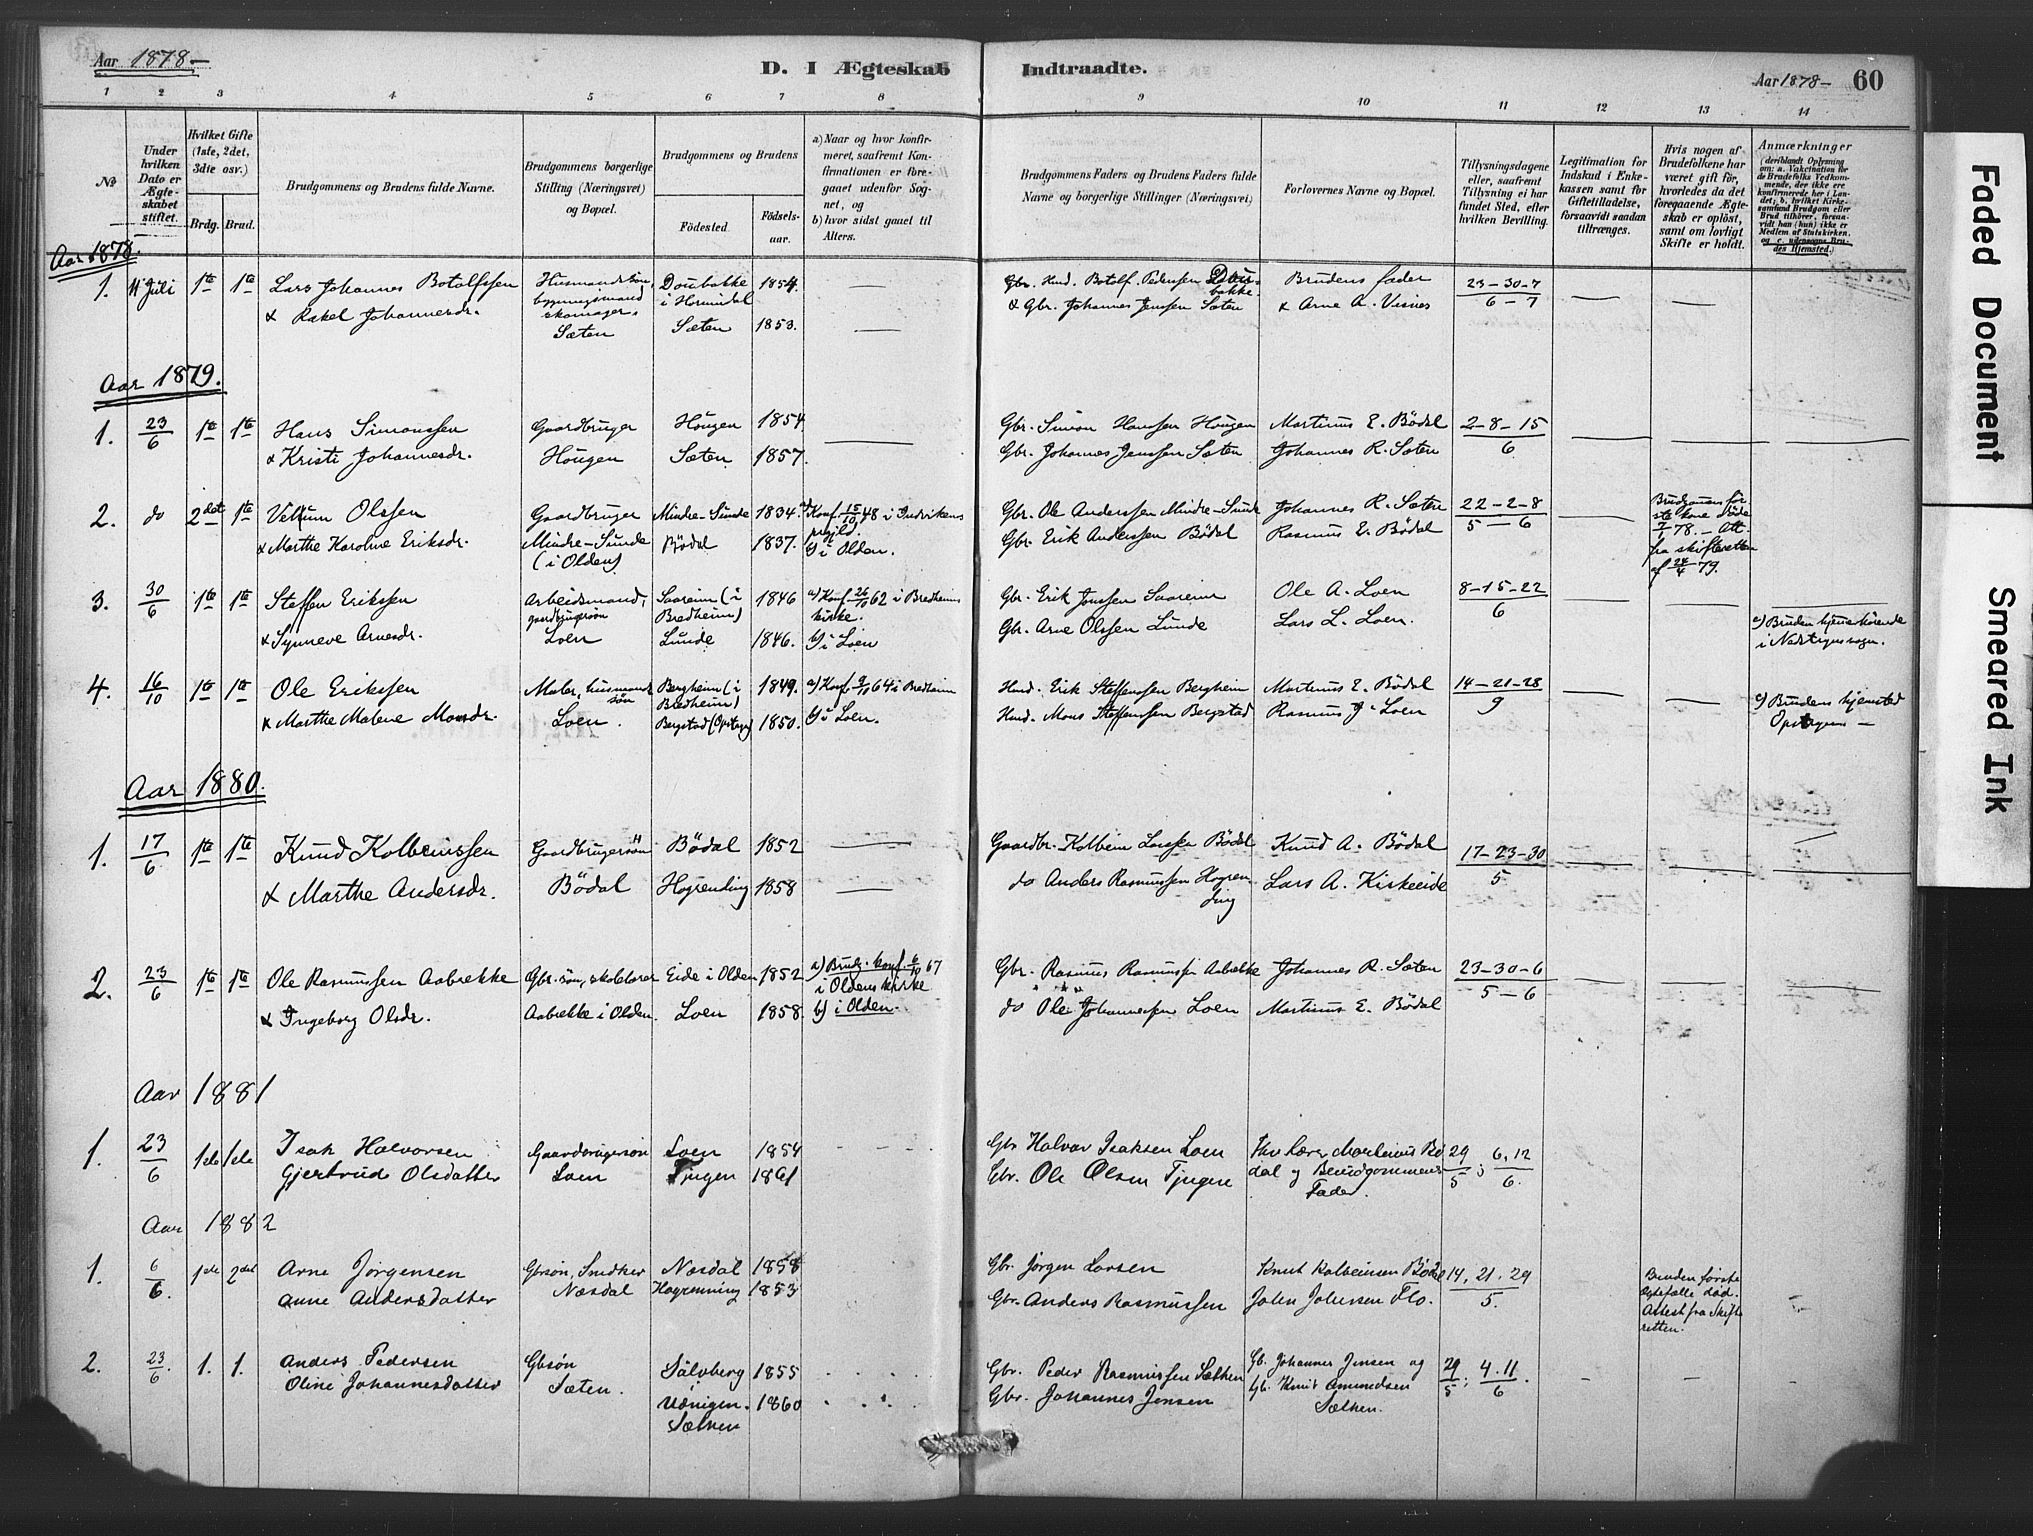 Aar 1878-
D. I Ægteskab Indtraadte.
Aar 1878- 60
1 2 3 4 5 6 7 8 9 10 11 12 13 14
№
Under hvilken Dato er Ægteskabet stiftet.
Hvilket Gifte (1ste, 2det, 3die osv.)
Brdg. Brud.
Brudgommens og Brudens fulde Navne.
Brudgommens borgerlige Stilling (Næringsvei) og Bopæl.
Brudgommens og Brudens
Fødested. Fødselsaar.
a) Naar og hvor konfirmeret, saafremt Konfirmationen er foregaaet udenfor Sognet, og
b) hvor sidst gaaet til Alters.
Brudgommens Faders og Brudens Faders fulde Navne og borgerlige Stillinger (Næringsvei)
Forlovernes Navne og Bopæl.
Tillysningsdagene eller, saafremt Tillysning ei har fundet Sted, efter hvilken Bevilling.
Legitimation for Indskud i Enkekassen samt for Giftetilladelse, forsaavidt saadan tiltrænges.
Hvis nogen af Brudefolkene har været gift før, hvorledes da det foregaaende Ægteskab er opløst, samt om lovligt Skifte er holdt.
Anmærkninger
(deriblandt Oplysning om: a. Vakcination for de Brudefolks Vedkommende, der ikke ere konfirmerede her i Landet; b. hvilket Kirkesamfund Brudgom eller Brud tilhører, forsaavidt han (hun) ikke er Medlem af Statskirken, og c. udensogns Brudes Hjemsted.)
Aar 1878.
1. 11 Juli 1ste 1ste Lars Johannes Botolfssen
& Rakel Johannesdr.
Husmandssøn, bygningsmand skomager, Sæten
Doubakke i Hornindal 1854.
Sæten 1853.
Gbr. Husd. Botolf Pedersen Doubakke
& Gbr. Johannes Jenssen Sæten
Brudens fader
& Arne A. Visnes
23-30-7
6-7
Aar 1879.
1. 23/6 1ste 1ste Hans Simonssen
& Kristi Johannesdr.
Gaardbruger Hougen
Hougen 1854
Sæten 1857.
Gbr. Simon Hanssen Hougen
Gbr. Johannes Jenssen Sæten
Martinus E. Bödal
Johannes R. Sæten
2-8-15
6
2. do 2det 1ste Olssen
& Marthe Karoline Eriksdr.
Gaardbruger Mindre-Sunde (i Olden)
Mindre-Sunde 1834.
Bödal 1837.
a) Konf. 15/10 48 i Indvikens prgjld.
b) i Olden.
Gbr. Ole Anderssen Mindre-Sunde
Gbr. Erik Anderssen Bödal
Johannes R. Sæten
Rasmus E. Bödal
22-2-8
5-6
Brudgomens første kone døde 7/7 78. - Att. fra skifteretten af 24/4 79.
3. 30/6 1ste 1ste Steffen Erikssen
& Synneve Arnesdr.
Arbeidsmand, gaardbrugersøn Loen
Saareim (i Bredheim) 1846
Lunde 1846.
a) Konf. 26/10 62 i Bredheims kirke.
b) i Loen
Gbr. Erik Jonssen Saareim
Gbr. Arne Olssen Lunde
Ole A. Loen
Lars L. Loen.
8-15-22
6
c) Bruden hjemehørende i Nestrynsogn.
4. 16/10 1ste 1ste Ole Erikssen
& Marthe Malene Monsdr.
Maler, husmandssøn Loen.
Bergheim (i Bredheim) 1849.
Bergstad (Opstryn) 1850.
a) Konf. 9/10 64 i Bredheim
b) i Loen.
Husd. Erik Steffenssen Bergheim
Husd. Mons Steffenssen Bergstad
Martinus E. Bödal
Rasmus J. Loen
14-21-28
9
c) Brudens hjemsted Opstryn -
Aar 1880.
1. 17/6 1ste 1ste Knud Kolbeinssen
& Marthe Andersdr.
Gaardbrugersøn Bödal
Bödal 1852
Hogrending 1858
Gaardbr. Kolbein Larssen Bödal
do Anders Rasmussen Hogrending
Knud A. Bödal
Lars A. Kirkeeide
17-23-30
5
2. 23/6 1ste 1ste Ole Rasmussen Aabrekke
& Ingeborg Olsdr.
Gbr. søn, skolelærer Aabrekke i Olden.
Eide i Olden 1852
Loen 1858.
a) Brudg. konf. 6/10 67 i Oldens kirke
b) i Olden
Gbr. Rasmus Rasmussen Aabrekke
do Ole Johannessen Loen
Johannes R. Sæten
Martinus E. Bödal
23-30-6
5-6
Aar 1881
1. 23/6 1ste 1ste Isak Halvorsen
Gjertrude Olsdatter
Gaardbrugersøn Loen
Loen 1854
Tjugen 1861
Gbr Halvor Isaksen Loen
Gbr. Ole Olsen Tjugen
Martinus Bødal og Brudgommens Fader.
29/5; 6, 12/6.
Aar 1882
1. 6/6. 1ste 2det Arne Jørgensen
Anne Andersdatter
Gbrsøn, Snedker Næsdal
Næsdal 1858
Hogrenning 1853
Gbr. Jørgen Larsen
Gbr. Anders Rasmussen
Knut Kolbeinsen Bødal
John Johnsen Flo.
14, 21, 29
5.
Bruden første Ægtefælle død. Attest fra Skifteretten.
2. 23/6. 1. 1. Anders Pedersen
Oline Johannesdatter
Gbsøn Sæten.
Sølvberg 1855
Sæthen 1860
Gbr. Peder Rasmussen Sæthen
Gbr. Johannes Jensen
Gb. Johannes Jensen og
Gb. Knut Amundsen Sæthen.
29/5; 4.11/6.
Faded Document
Smeared Ink